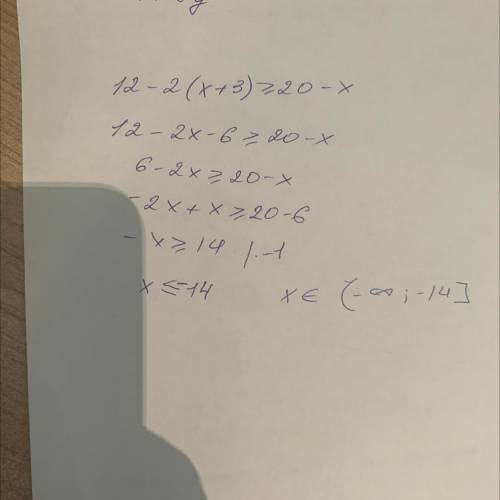 12 - 2(x+3) ⩾ 20 - x
12 - 2x - 6 ⩾ 20 - x
6 - 2x ⩾ 20 - x
- 2x + x ⩾ 20 - 6
- x ⩾ 14 | · -1
x ⩽ -14 x ∈ (-∞ ; -14]